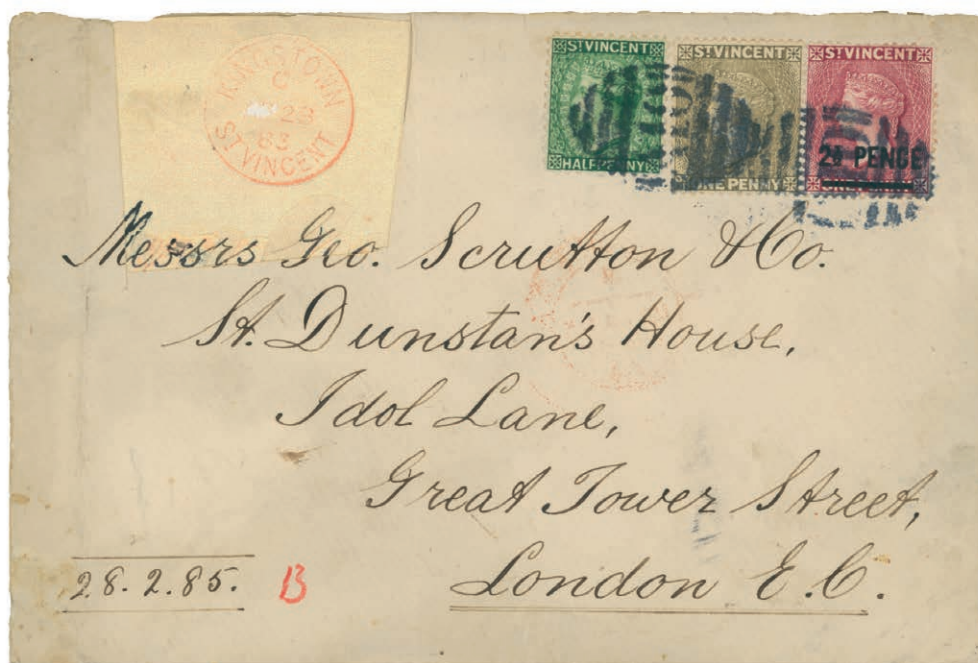 KINGSTOWN
C
23
83
ST VINCENT
ST VINCENT
HALFPENNY
ST VINCENT
ONE PENNY
ST VINCENT
PENCE
Messrs Geo. Scrutton & Co.
St. Dunstan's House,
Idol Lane,
Great Tower Street,
London E.C.
28.2.85.
B